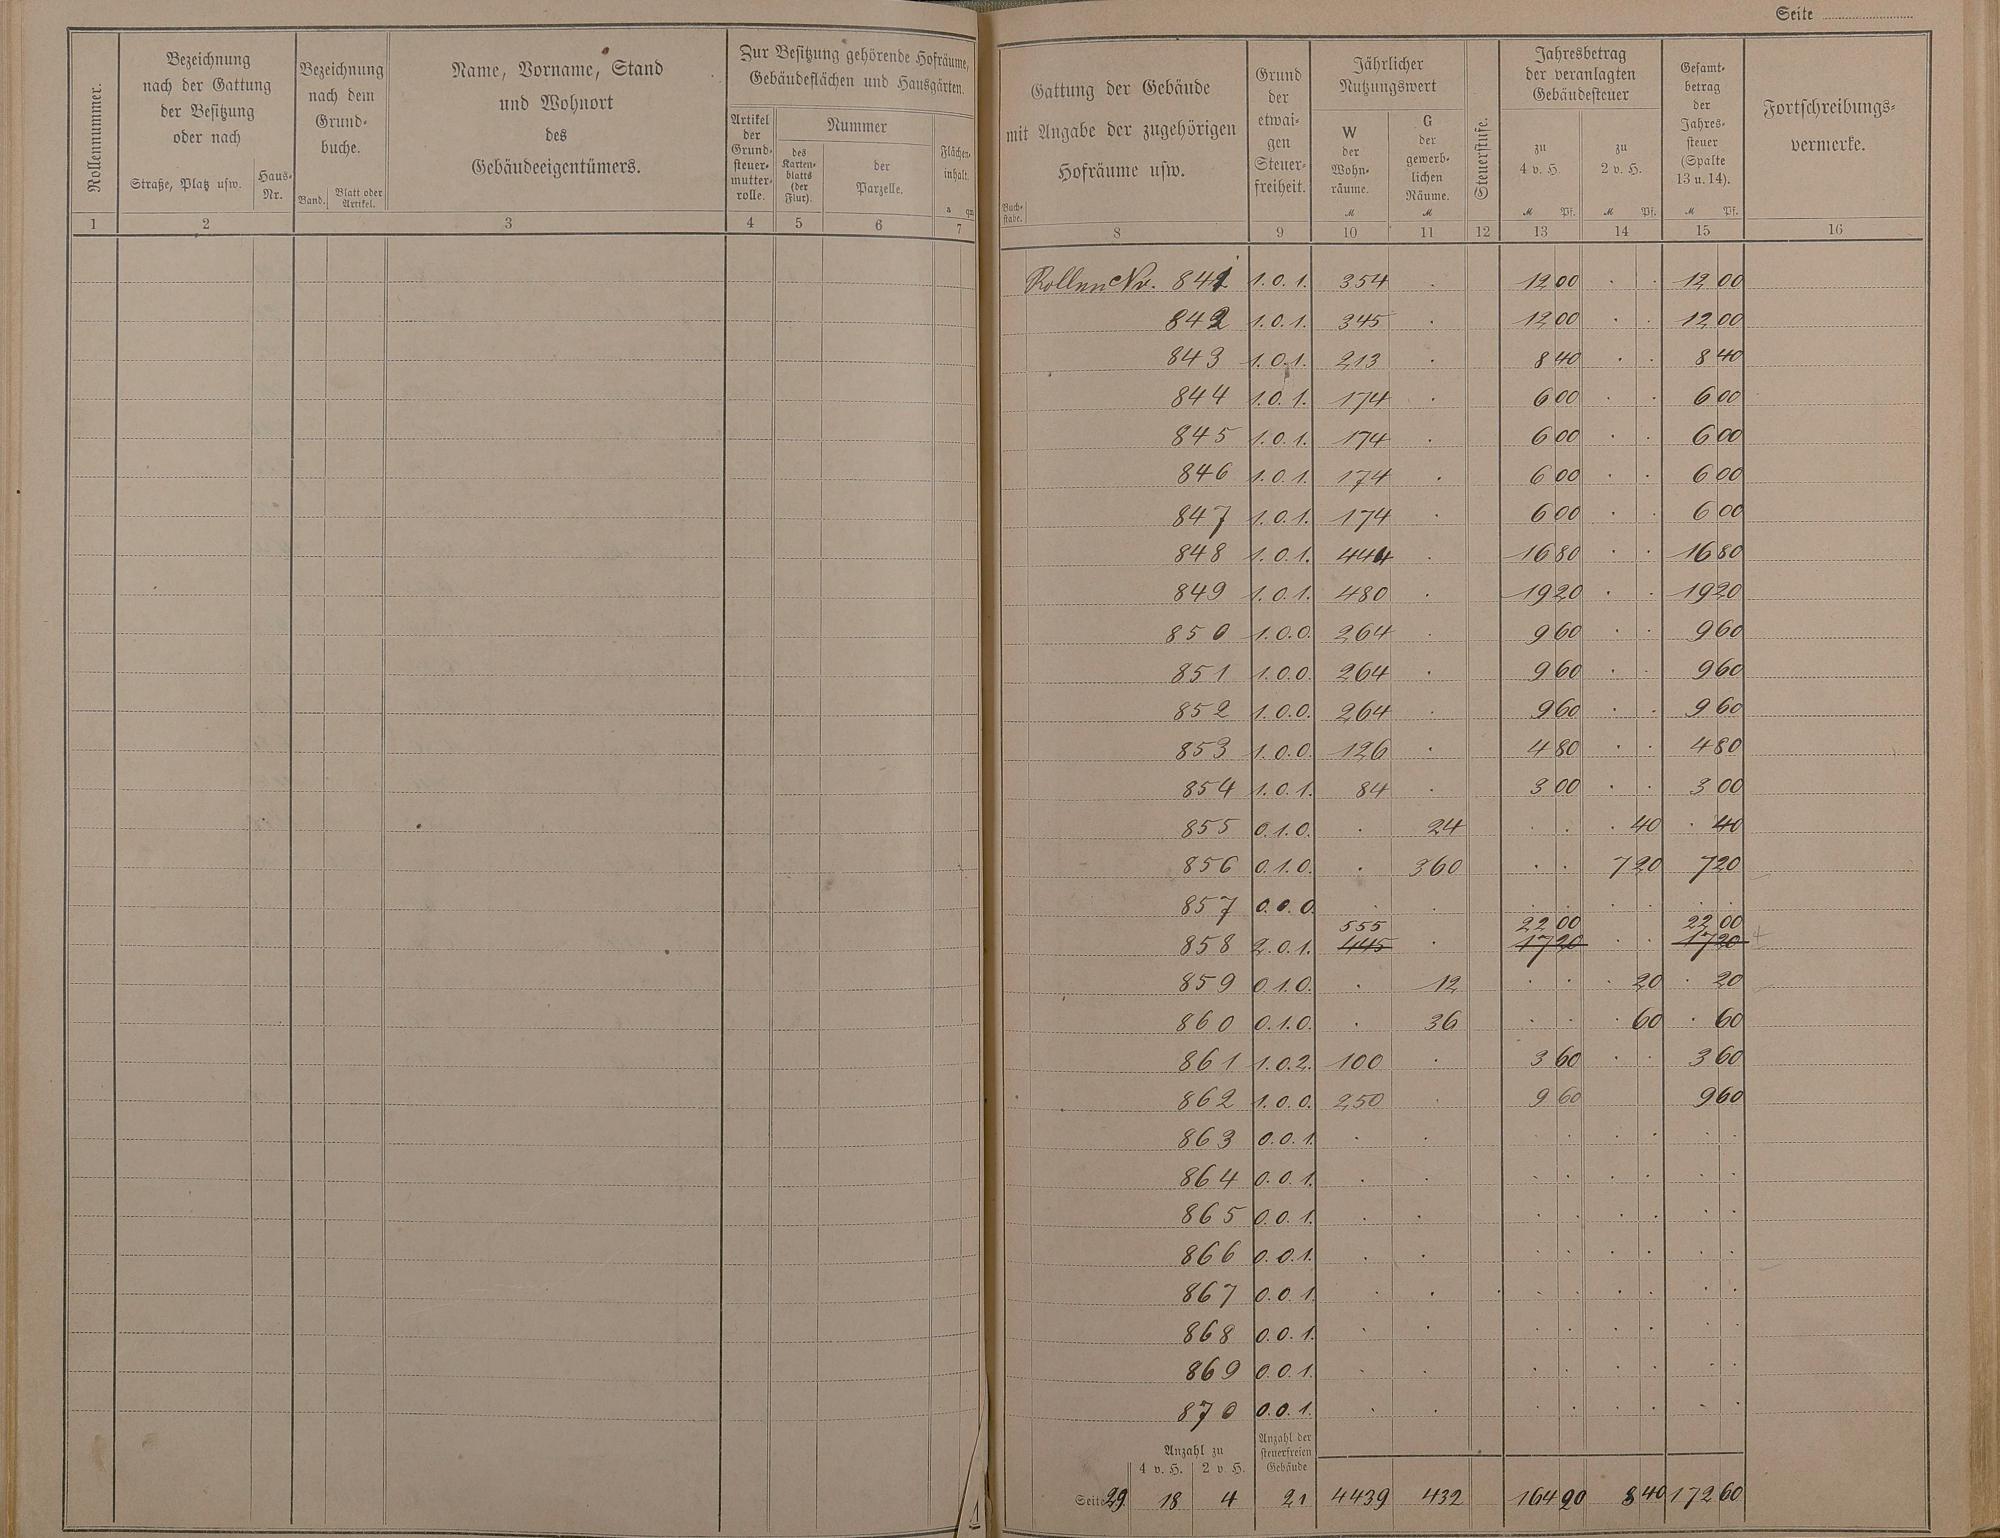 Seite
Rollennummer.
Bezeichnung
nach der Gattung
der Besitzung
oder nach
Straße, Platz usw.
Haus-
Nr.
Bezeichnung
nach dem
Grund-
buche.
Band.
Blatt oder
Artikel.
Name, Vorname, Stand
und Wohnort
des
Gebäudeeigentümers.
Zur Besitzung gehörende Hofräume,
Gebäudeflächen und Hausgärten.
Artikel
der
Grund-
steuer-
mutter-
rolle.
Nummer
des
Karten-
blatts
(der
Flur).
der
Parzelle.
Flächen-
inhalt.
a qm
1 2 3 4 5 6 7
Gattung der Gebäude
mit Angabe der zugehörigen
Hofräume usw.
Buch-
stabe.
Grund
der
etwai-
gen
Steuer-
freiheit.
Jährlicher
Nutzungswert
W
der
Wohn-
räume.
M
G
der
gewerb-
lichen
Räume.
M
Steuerstufe.
Jahresbetrag
der veranlagten
Gebäudesteuer
zu
4 v. H.
M Pf.
zu
2 v. H.
M Pf.
Gesamt-
betrag
der
Jahres-
steuer
(Spalte
13 u. 14).
M Pf.
Fortschreibungs-
vermerke.
8 9 10 11 12 13 14 15 16
Rollen Nr. 841 1.0.1. 354 . 12 00 . . 12 00
842 1.0.1. 345 . 12 00 . . 12 00
843 1.0.1. 213 . 8 40 . . 8 40
844 1.0.1. 174 . 6 00 . . 6 00
845 1.0.1. 174 . 6 00 . . 6 00
846 1.0.1. 174 . 6 00 . . 6 00
847 1.0.1. 174 . 6 00 . . 6 00
848 1.0.1. 444 . 16 80 . . 16 80
849 1.0.1. 480 . 19 20 . . 19 20
850 1.0.0. 264 . 9 60 . . 9 60
851 1.0.0. 264 . 9 60 . . 9 60
852 1.0.0. 264 . 9 60 . . 9 60
853 1.0.0. 126 . 4 80 . . 4 80
854 1.0.1. 84 . 3 00 . . 3 00
855 0.1.0. . 24 . . . 40 . 40
856 0.1.0. . 360 . . 7 20 7 20
857 0.0.0. . . . . . . . .
555 22 00 22 00
858 2.0.1. 445 . 17 20 . . 17 20
859 0.1.0. . 12 . . . 20 . 20
860 0.1.0. . 36 . . . 60 . 60
861 1.0.2. 100 . 3 60 . . 3 60
862 1.0.0. 250 . 9 60 9 60
863 0.0.1. . . . . . . . .
864 0.0.1. . . . . . . . .
865 0.0.1. . . . . . . . .
866 0.0.1. . . . . . . . .
867 0.0.1. . . . . . . . .
868 0.0.1. . . . . . . . .
869 0.0.1. . . . . . . . .
870 0.0.1. . . . . . . . .
Anzahl zu
4 v. H. 2 v. H.
Anzahl der
steuerfreien
Gebäude
Seite 29 18 4 21 4439 432 164 20 8 40 172 60